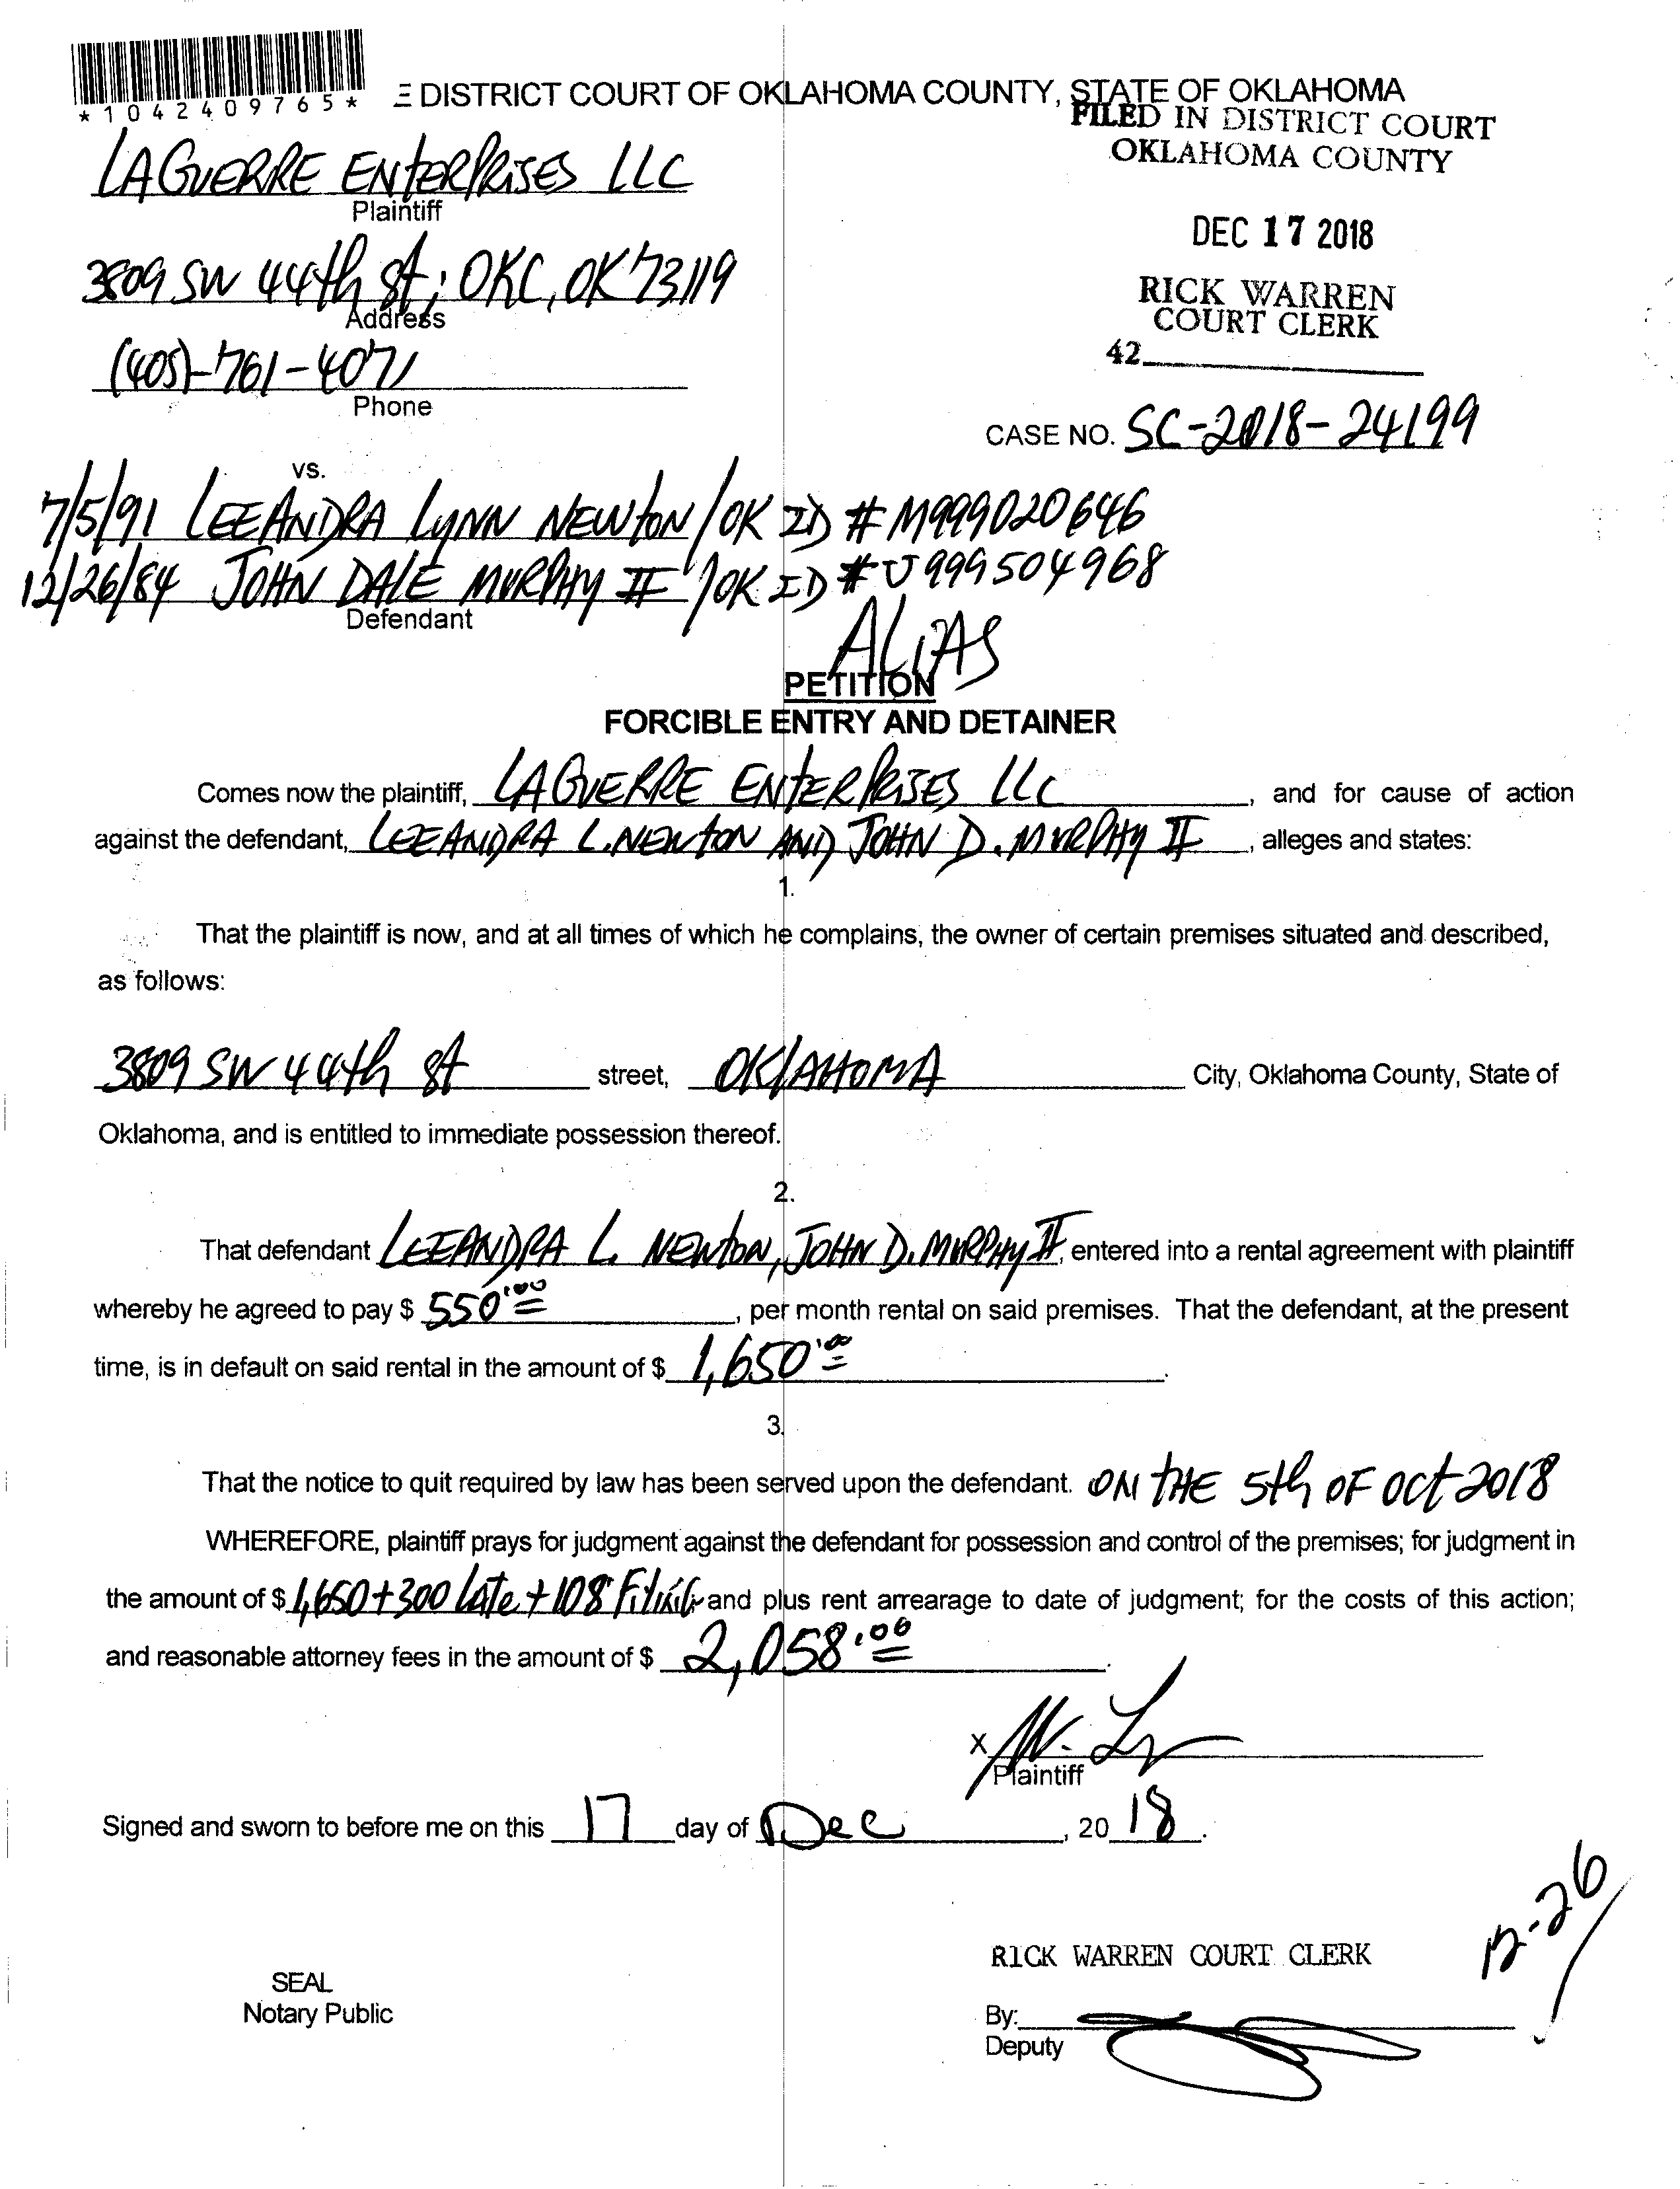 *1042409765*
E DISTRICT COURT OF OKLAHOMA COUNTY, STATE OF OKLAHOMA
FILED IN DISTRICT COURT
OKLAHOMA COUNTY
LAGUERRE ENTERPRISES LLC
Plaintiff
DEC 17 2018
3809 SW 44th St; OKC, OK 73119
Address
RICK WARREN
COURT CLERK
42
(405)-761-4071
Phone
CASE NO. SC-2018-24199
vs.
7/5/91 LEEANDRA LYNN NEWTON / OK ID # M999020646
12/26/84 JOHN DALE MURPHY II / OK ID # U999504968
Defendant
ALIAS
PETITION
FORCIBLE ENTRY AND DETAINER
Comes now the plaintiff, LAGUERRE ENTERPRISES LLC, and for cause of action
against the defendant, LEEANDRA L. NEWTON AND JOHN D. MURPHY II, alleges and states:
1.
That the plaintiff is now, and at all times of which he complains, the owner of certain premises situated and described,
as follows:
3809 SW 44th St street, OKLAHOMA City, Oklahoma County, State of
Oklahoma, and is entitled to immediate possession thereof.
2.
That defendant LEEANDRA L. NEWTON, JOHN D. MURPHY II, entered into a rental agreement with plaintiff
whereby he agreed to pay $ 550.00, per month rental on said premises. That the defendant, at the present
time, is in default on said rental in the amount of $ 1,650.00.
3.
That the notice to quit required by law has been served upon the defendant. ON THE 5th OF Oct 2018
WHEREFORE, plaintiff prays for judgment against the defendant for possession and control of the premises; for judgment in
the amount of $ 1,650 + 300 Late + 108 Filing and plus rent arrearage to date of judgment; for the costs of this action;
and reasonable attorney fees in the amount of $ 2,058.00.
X
Plaintiff
Signed and sworn to before me on this 17 day of Dec, 2018.
12-26
RICK WARREN COURT CLERK
SEAL
Notary Public
By:
Deputy